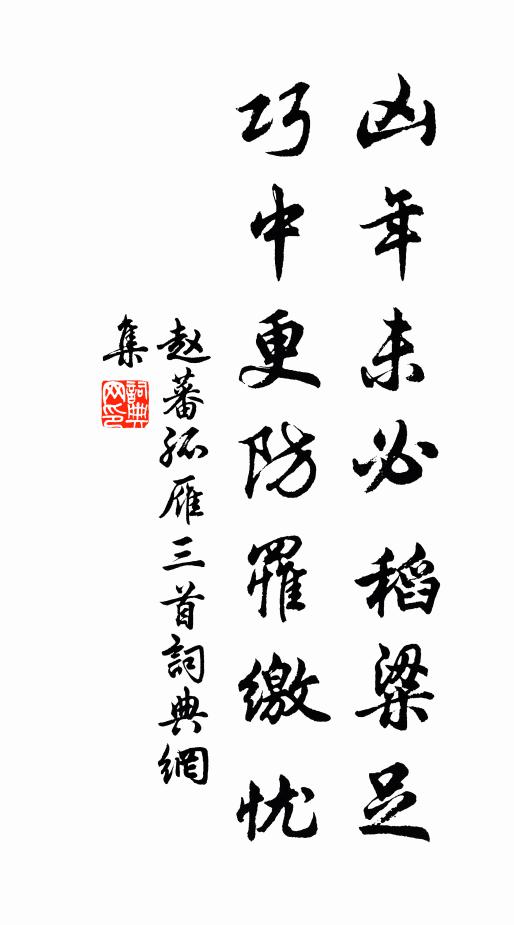 凶年未必稻粱足
巧中更防罹繳忧
赵蕃孤雁三首詞典網
集
詞典
网印